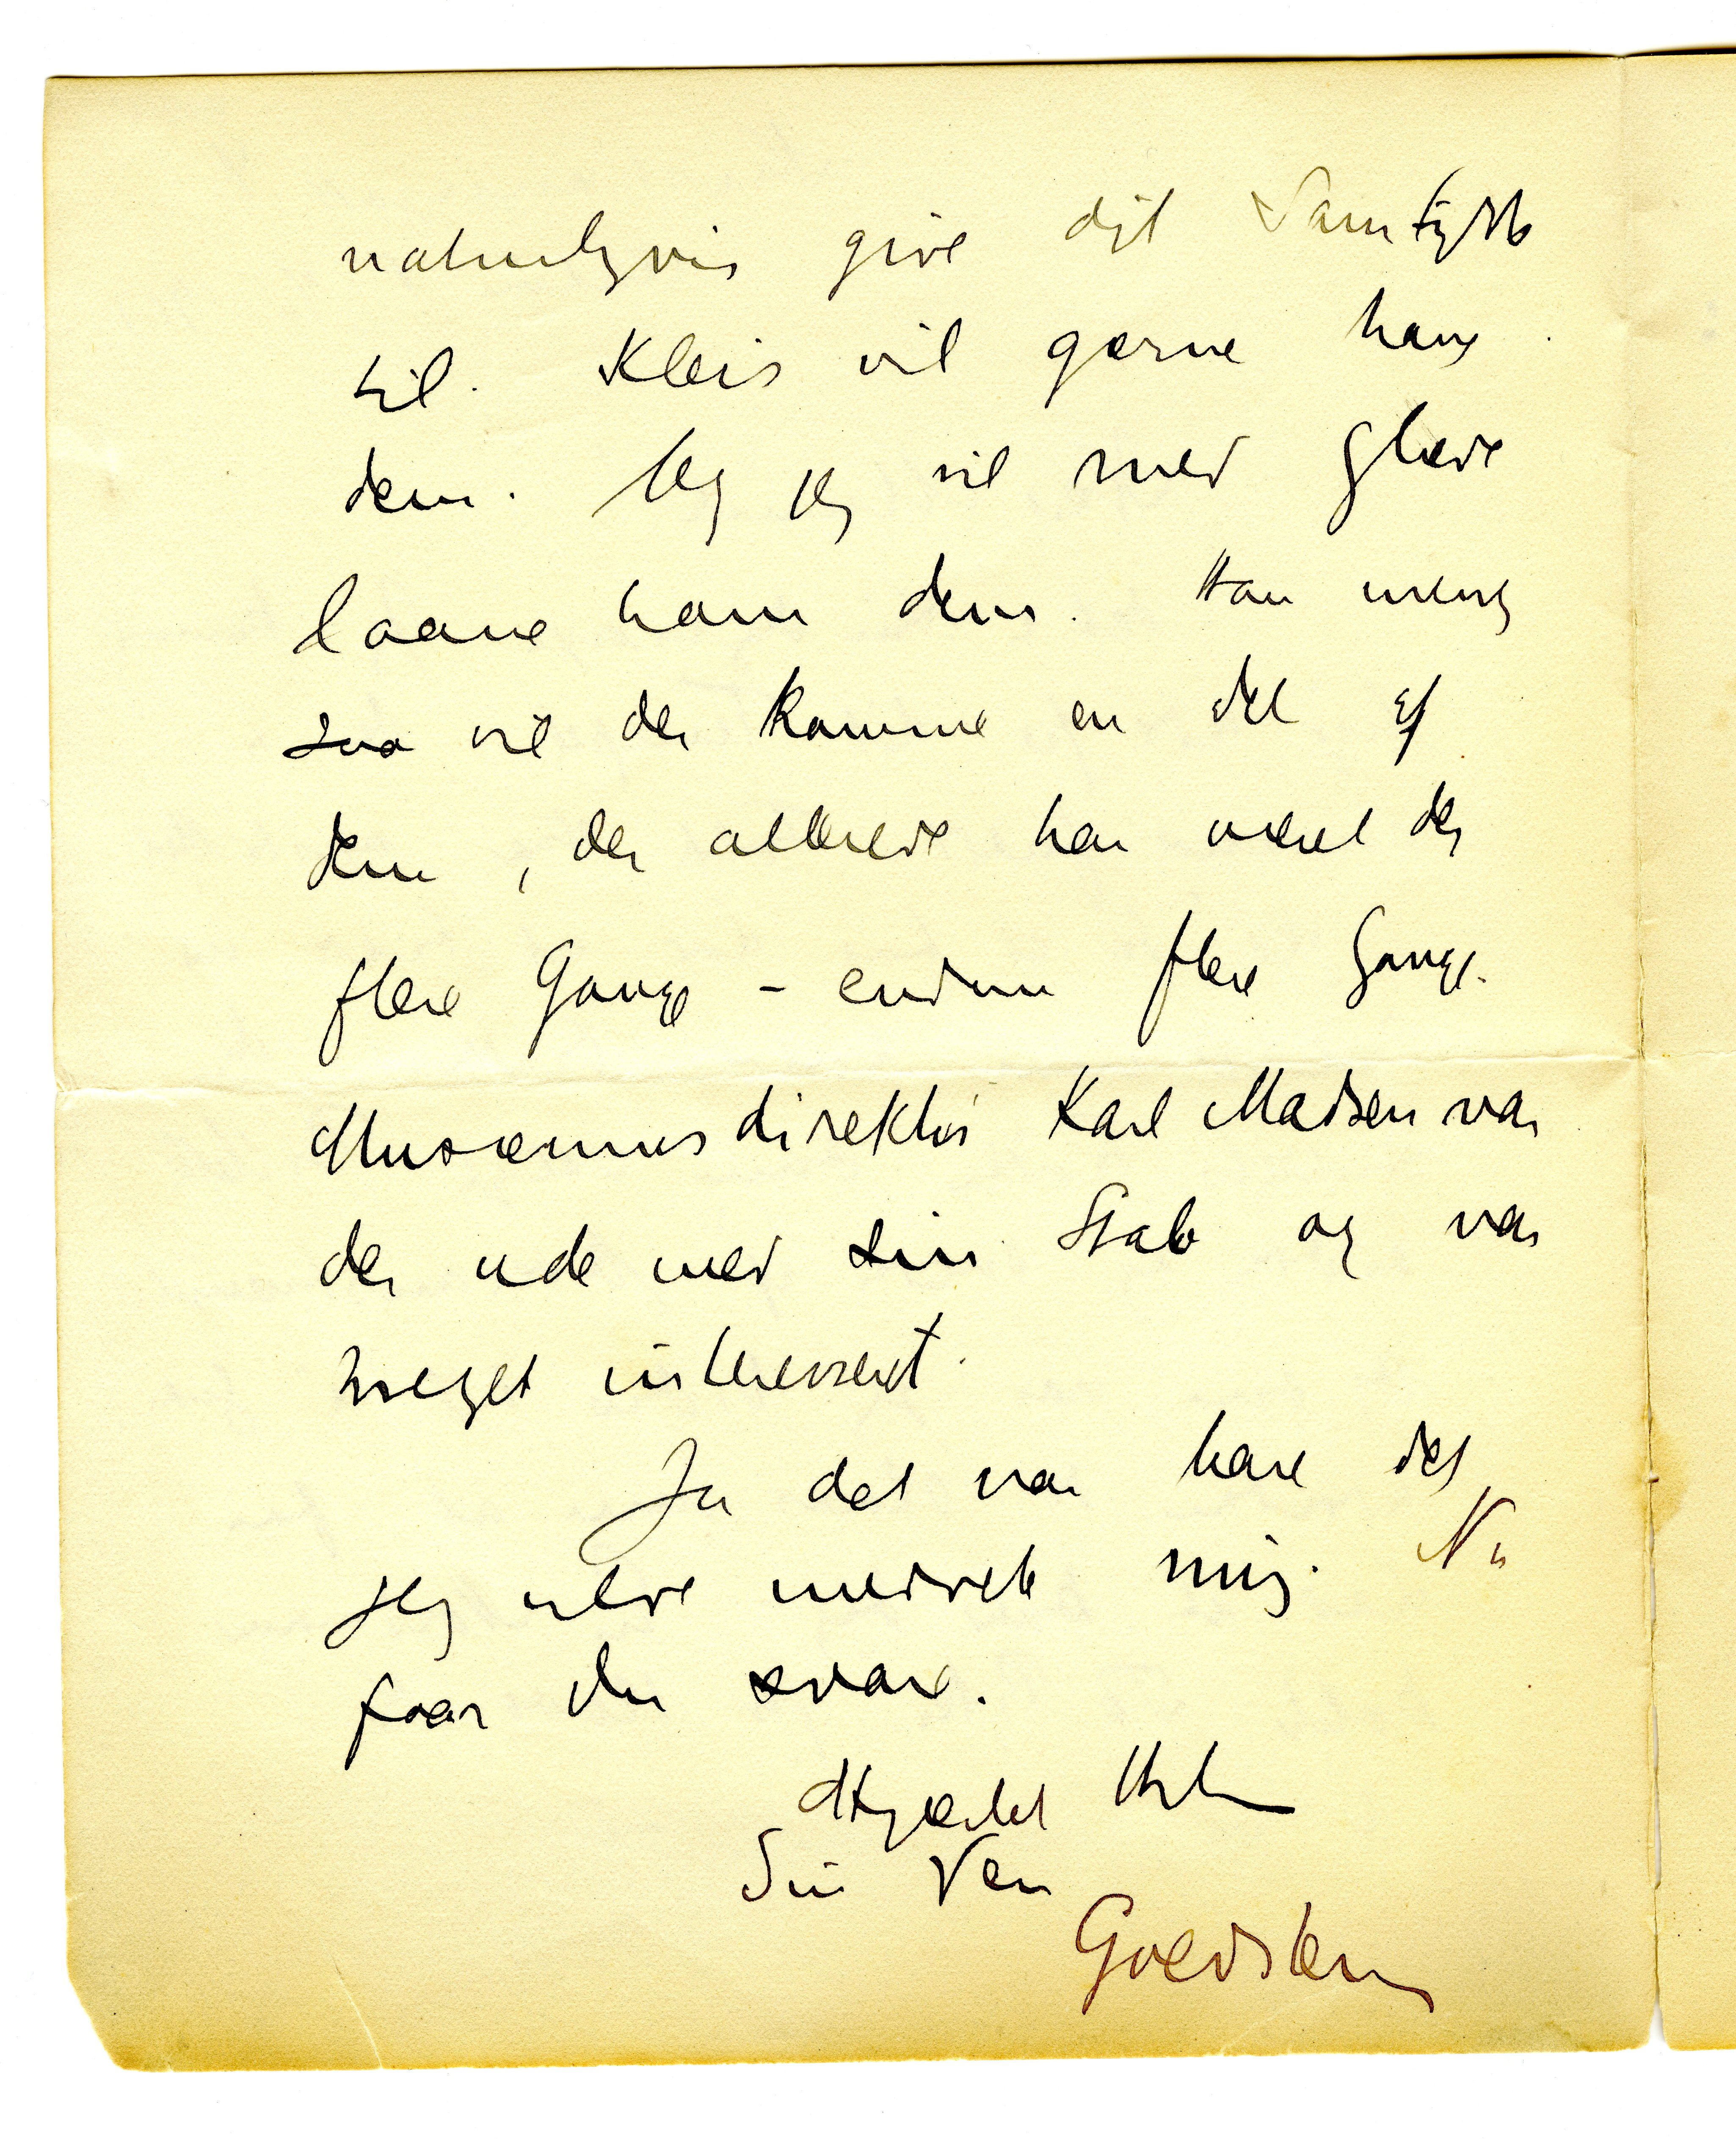 naturligvis give dit Samtykke
til. Kleis vil gerne have
dem. Og jeg vil med Glæde
laane ham dem. Han mener
saa vil der komme en del af
dem, der allerede har været der
flere Gange – endnu flere Gange.
Musæumsdirektør Karl Madsen var
der ude med sin Stab og var
meget interesseret.
Ja det var bare det
jeg vilde meddele mig. Nu
faar du svare.
Hjertelig Hilsen
Din Ven
Goedstem